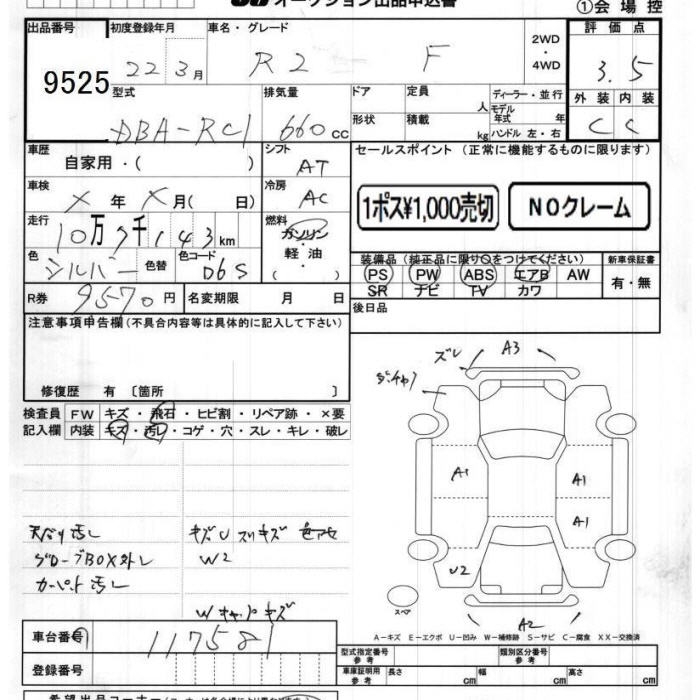 オークション出品申込書
①会場控
出品番号
9525
初度登録年月
22 3月
車名・グレード
R2 F
2WD
・
4WD
評価点
3.5
型式
DBA-RC1
排気量
660cc
ドア
形状
定員 人
積載 kg
ディーラー・並行
モデル年式 年
ハンドル 左・右
外装 内装
C C
車歴
自家用・( )
シフト
AT
セールスポイント (正常に機能するものに限ります)
車検
X 年 X 月( 日)
冷房
AC
1ポス¥1,000売切
NOクレーム
走行
10万7千143km
燃料
ガソリン
・
軽油
( )
色
シルバー
色替
色コード
D6S
装備品 (純正品に限り○をつけてください)
PS PW ABS エアB AW
SR ナビ TV カワ
新車保証書
有・無
R券
9570円
名変期限 月 日
後日品
注意事項申告欄(不具合内容等は具体的に記入して下さい)
修復歴 有 〔箇所 〕
検査員
記入欄
FW キズ・飛石・ヒビ割・リペア跡・×要
内装 キズ・汚レ・コゲ・穴・スレ・キレ・破レ
ズレ
A3
A1
A1
A1
U2
A2
スペア
天バリ汚し
グローブBOX外レ
カーペット汚し
キズU スリキズ 色アセ
W2
Wキャップキズ
A-キズ E-エクボ U-凹み W-補修跡 S-サビ C-腐食 XX-交換済
車台番号
117581
型式指定番号
参考
類別区分番号
参考
登録番号
車庫証明用
参考
長さ cm
幅 cm
高さ cm
希望出品コーナー